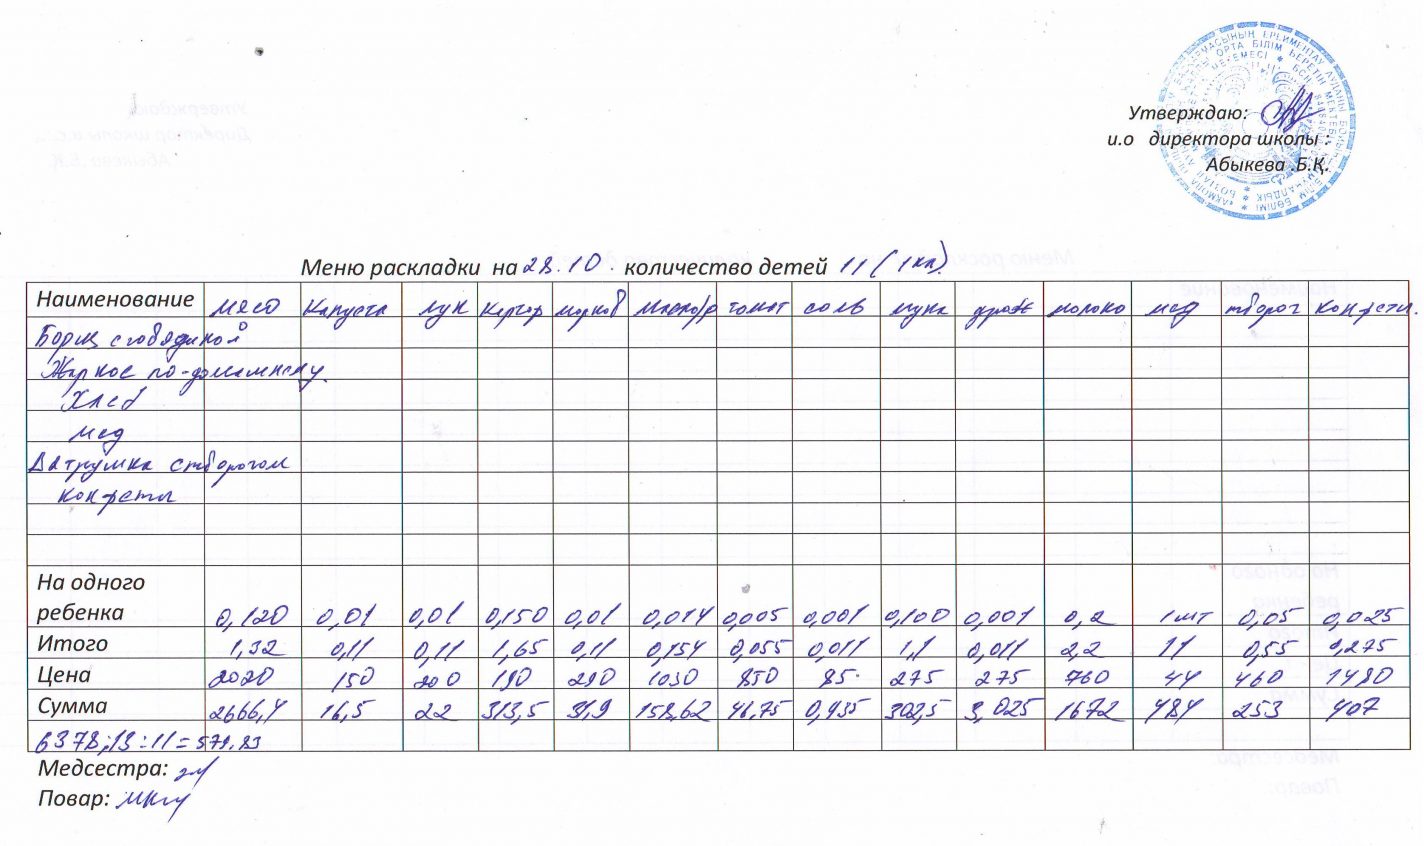 Утверждаю:
и.о директора школы :
Абыкева .Б.Қ.
Меню раскладки на 28.10. количество детей 11 (1кл).
Наименование мясо капуста лук картоф морков масло/р томат соль мука дрож молоко мёд творог конфеты.
Борщ с говядиной
Жаркое по-домашнему.
Хлеб
мед
Ватрушка с творогом
конфеты
На одного
ребенка 0,120 0,01 0,01 0,150 0,01 0,014 0,005 0,001 0,100 0,001 0,2 1шт 0,05 0,025
Итого 1,32 0,11 0,11 1,65 0,11 0,154 0,055 0,011 1,1 0,011 2,2 11 0,55 0,275
Цена 2020 150 200 190 290 1030 850 85. 275 275 760 44 460 1480
Сумма 2666,4 16,5 22 313,5 31,9 158,62 46,75 0,935 302,5 3,025 1672 484 253 407
6378,13 : 11 = 579.83
Медсестра:
Повар: